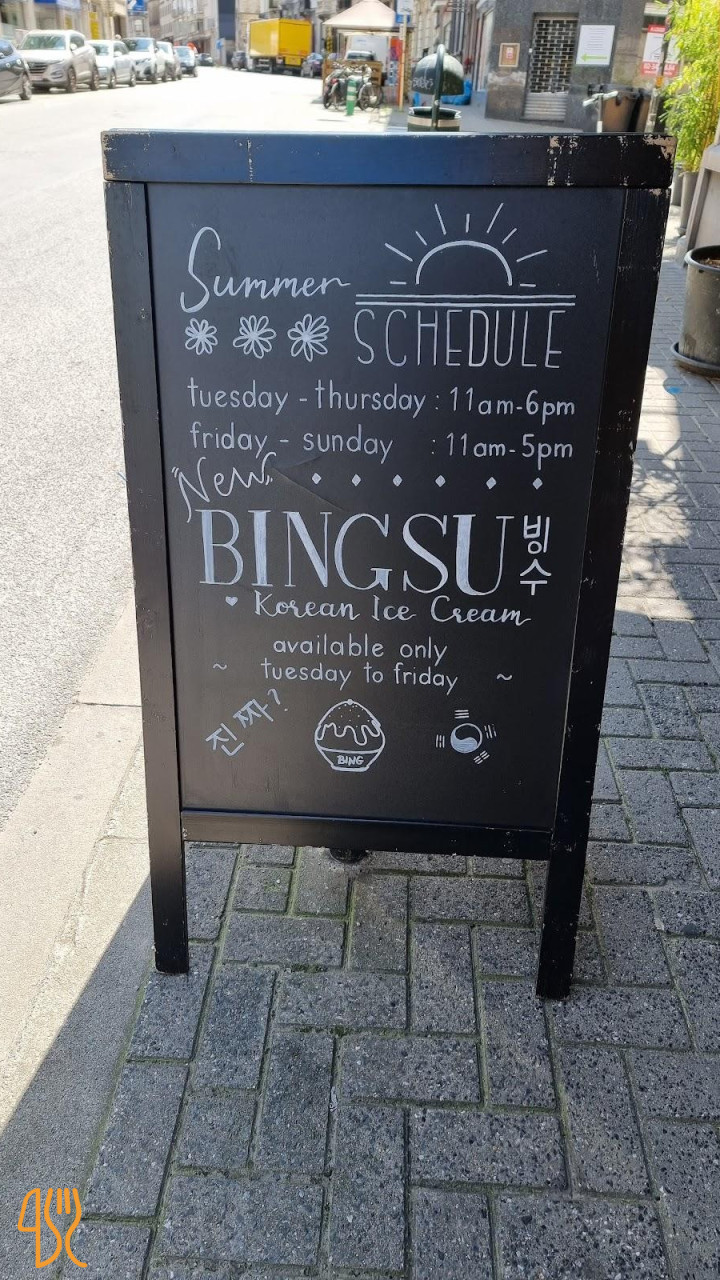 Summer
SCHEDULE
tuesday - thursday : 11am-6pm
friday - sunday : 11am-5pm
"New"
BINGSU 빙수
Korean Ice Cream
available only
~ tuesday to friday ~
진짜?
BING